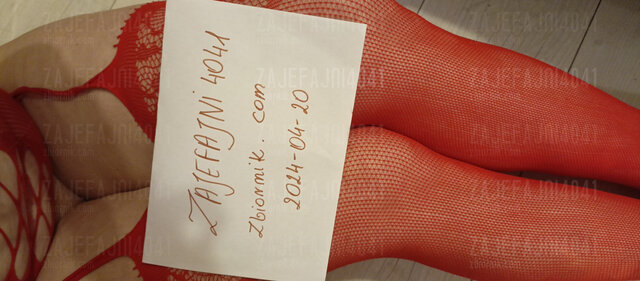 ZAJEFAJNI 4041
Zbiornik.com
2024-04-20
ZAJEFAJNI4041
zbiornik.com